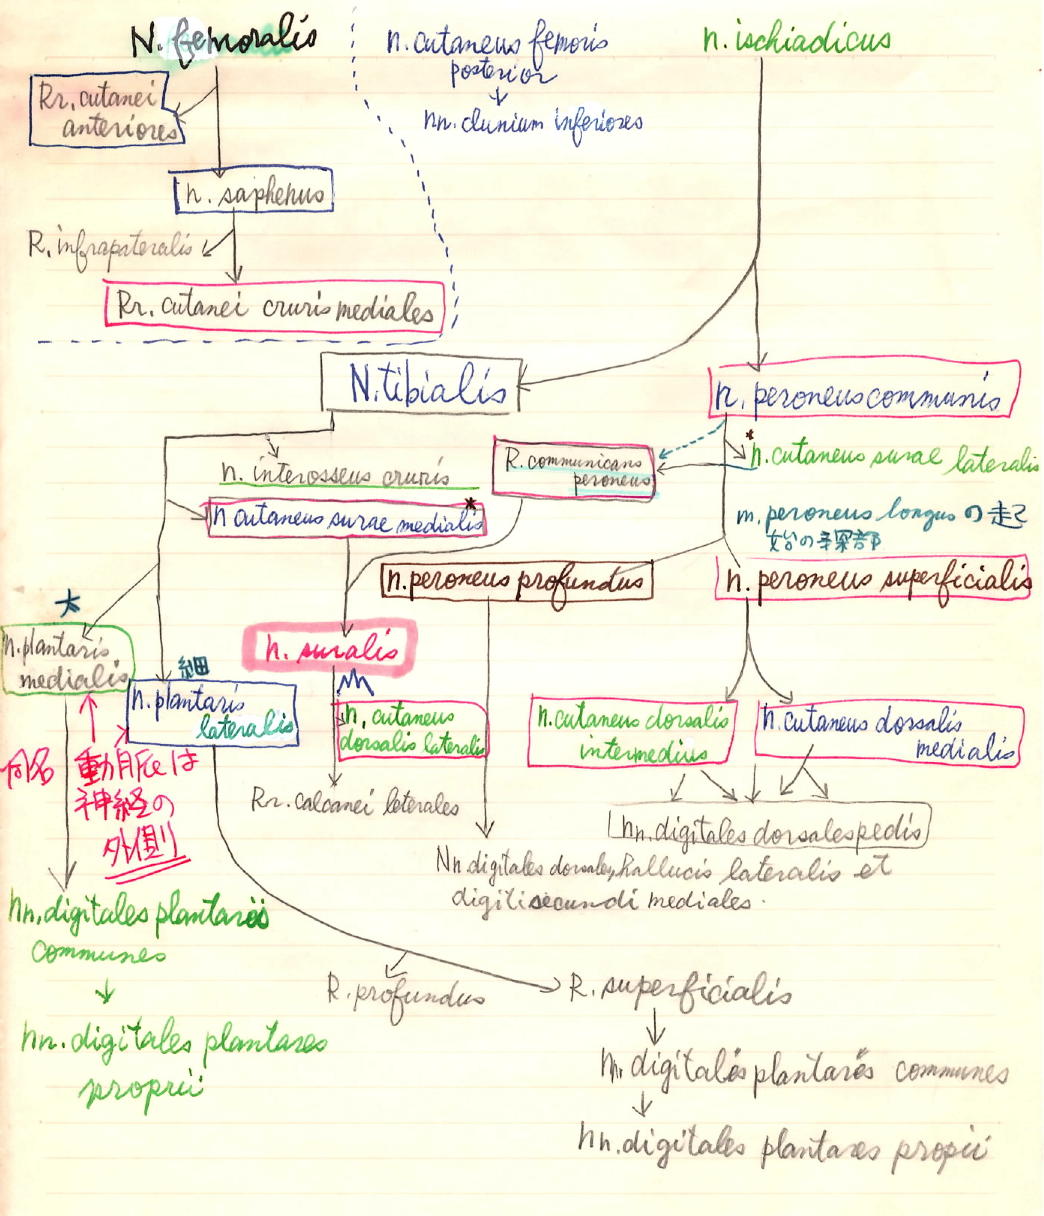 N. femoralis
n. cutaneus femoris
posterior
nn. clunium inferiores
n. ischiadicus
Rr. cutanei
anteriores
n. saphenus
R. infrapateralis
Rr. cutanei cruris mediales
N. tibialis
n. peroneus communis
n. interosseus cruris
R. communicans
peroneus
* n. cutaneus surae lateralis
n cutaneus surae medialis *
m. peroneus longus の起
始の深部
n. peroneus profundus
n. peroneus superficialis
大
n. plantaris
medialis
n. suralis
細
n. plantaris
lateralis
n. cutaneus
dorsalis lateralis
n. cutaneus dorsalis
intermedius
n. cutaneus dorsalis
medialis
同名 動脈は
神経の
外側
Rr. calcanei leterales
nn. digitales dorsales pedis
Nn. digitales dorsales, hallucis lateralis et
digiti secundi mediales.
nn. digitales plantares
communes
nn. digitales plantares
proprii
R. profundus
R. superficialis
nn. digitales plantares communes
nn. digitales plantares propii